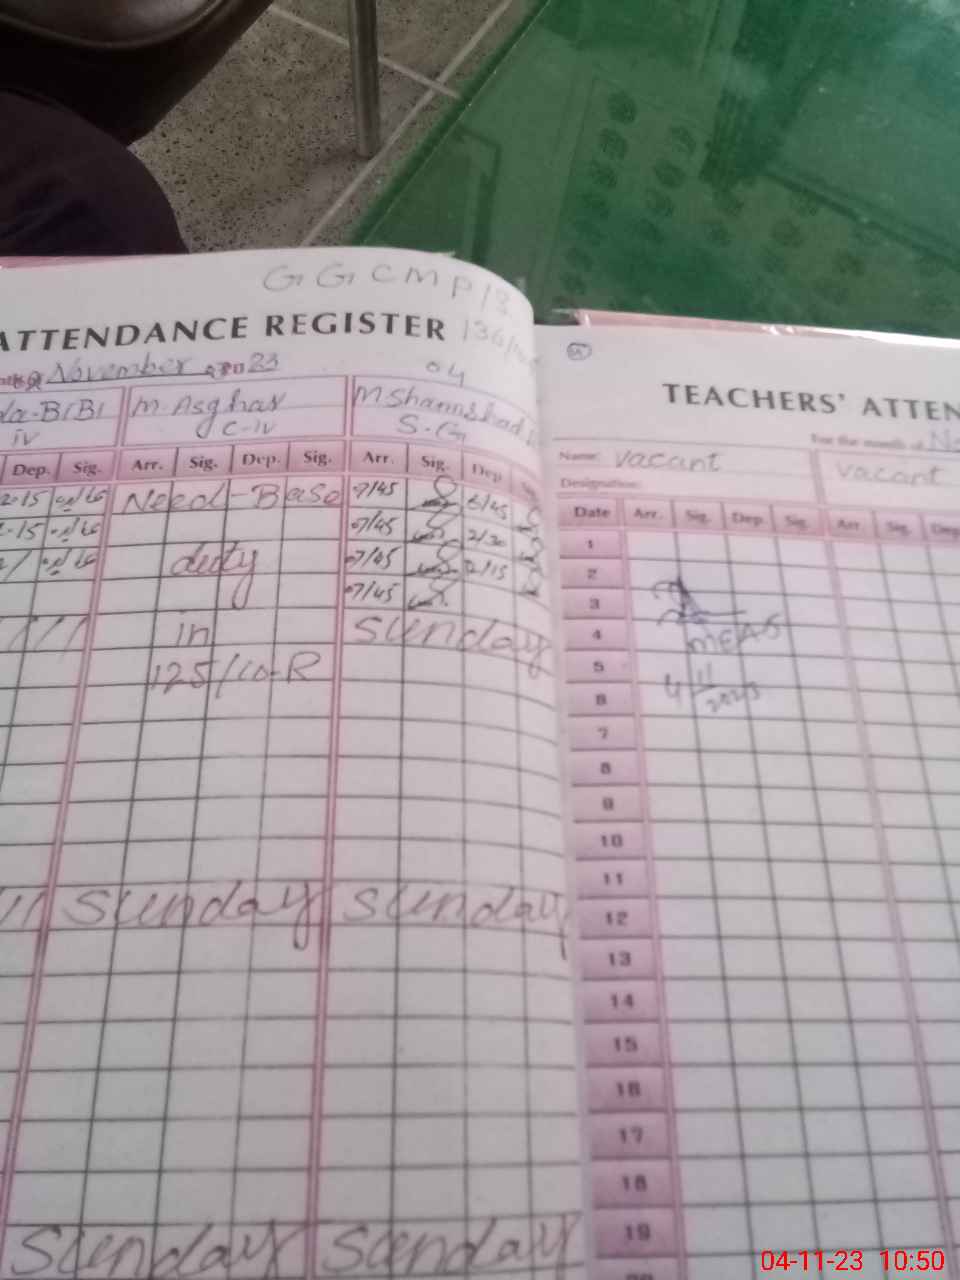 GGCMP/S
ATTENDANCE REGISTER
November 23
04
da-BiBi
iv
M.Asghar
C-iv
M Shamshad
S.G
Dep. Sig. Arr. Sig. Dep. Sig. Arr. Sig. Dep
2-15 Need-Base 07/45 6/45
2-15 07/45 2/30
duty 07/45 2/15
07/45
in Sunday
125/10-R
Sunday Sunday
Sunday Sunday
TEACHERS' ATTEN
For the month of No
Name: vacant vacant
Designation:
Date Arr. Sig. Dep. Sig. Arr. Sig. Dep
1
2
3
4
MEAS
5
6
4/11/2023
7
8
9
10
11
12
13
14
15
16
17
18
19
20
04-11-23 10:50